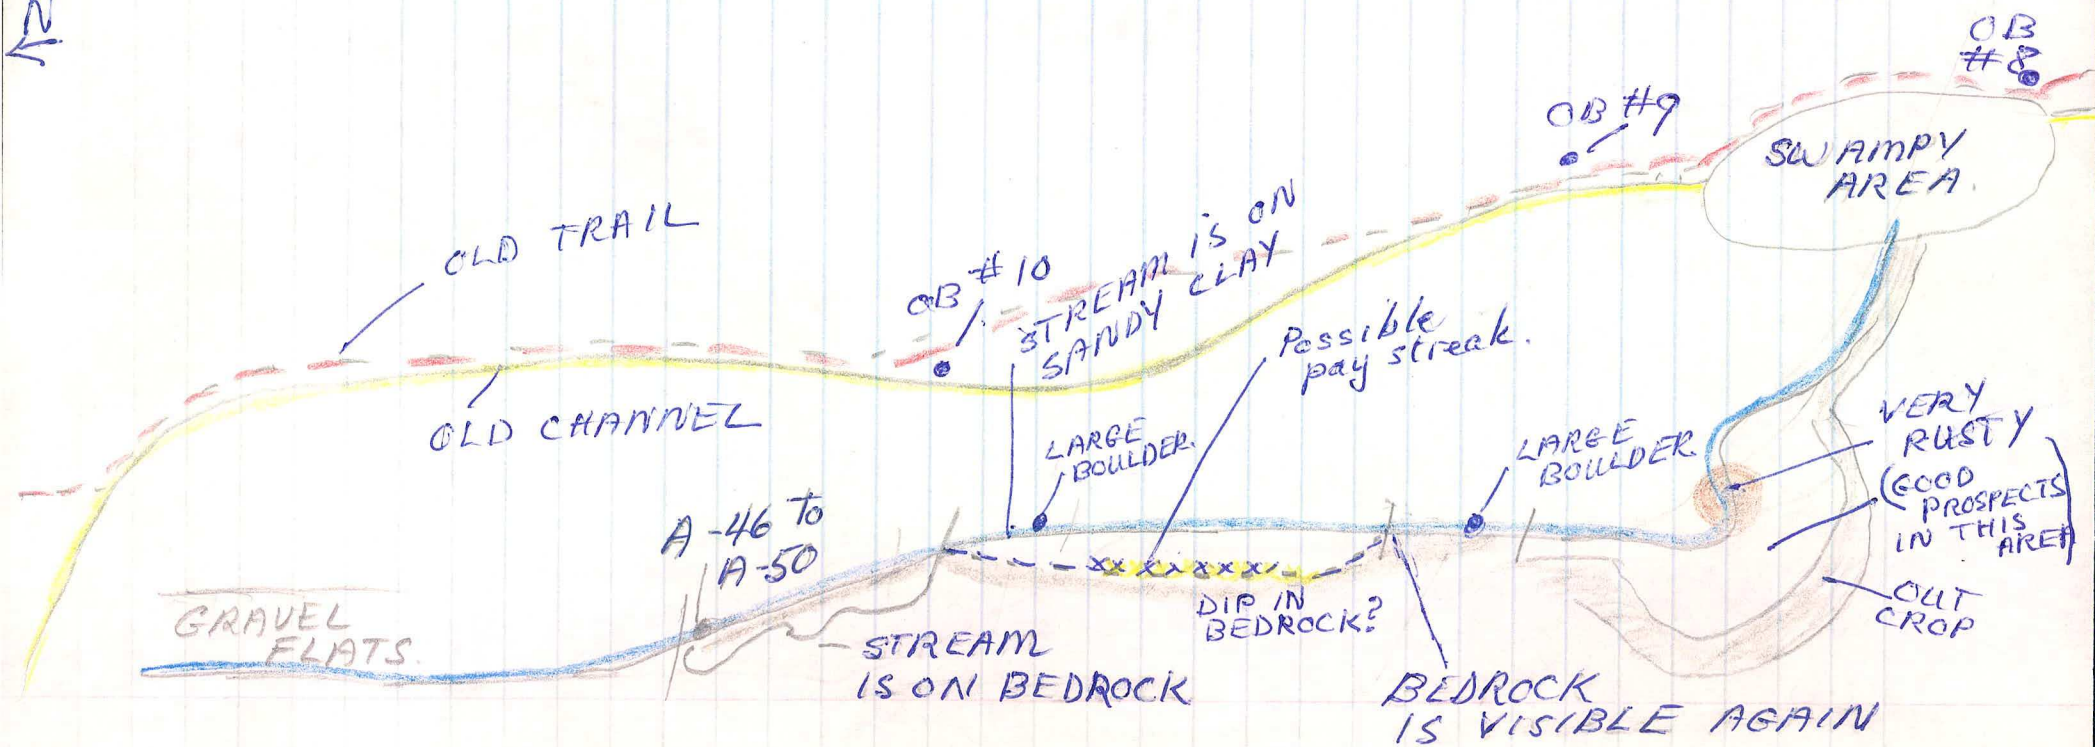 N
OB
#8
OB #9
SWAMPY
AREA.
OLD TRAIL
OB #10
STREAM IS ON
SANDY CLAY
Possible
pay streak.
OLD CHANNEL
LARGE
BOULDER.
LARGE
BOULDER.
VERY
RUSTY
(GOOD
PROSPECTS
IN THIS
AREA)
A-46 To
A-50
GRAVEL
FLATS.
DIP IN
BEDROCK?
OUT
CROP
STREAM
IS ON BEDROCK
BEDROCK
IS VISIBLE AGAIN
xx x x x x x